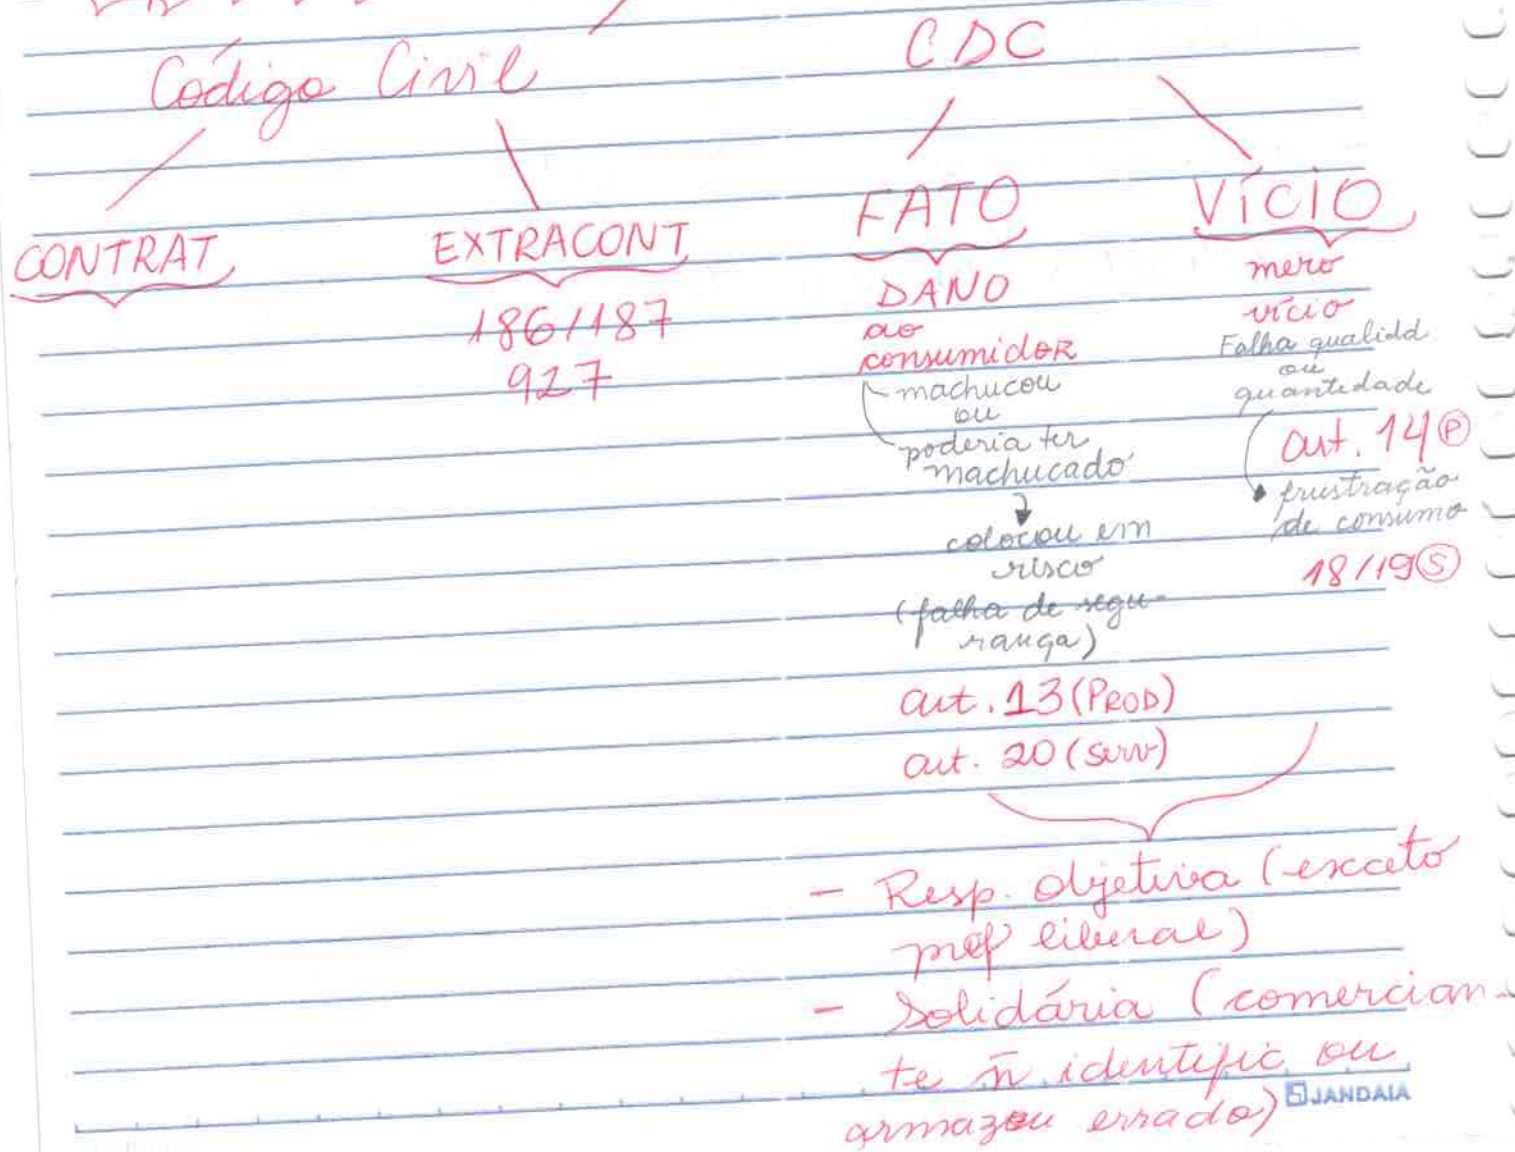 Código Civil
CDC
CONTRAT
EXTRACONT
186/187
927
FATO
DANO
ao
consumidor
machucou
ou
poderia ter
machucado
colocou em
risco
(falha de segu-
rança)
art. 13 (PROD)
art. 20 (serv)
VÍCIO
mero
vício
Falha qualidd
ou
quantidade
art. 14 (P)
frustração
de consumo
18/19 (S)
- Resp. objetiva (exceto
prof liberal)
- Solidária (comercian-
te ñ identific ou
armazou errado)
JANDAIA